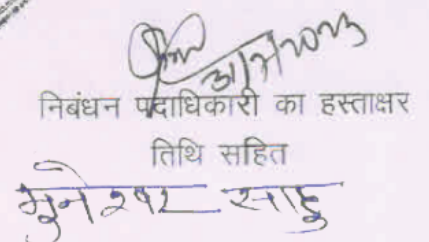 निबंधन पदाधिकारी का हस्ताक्षर
तिथि सहित
मुनेश्वर साहु